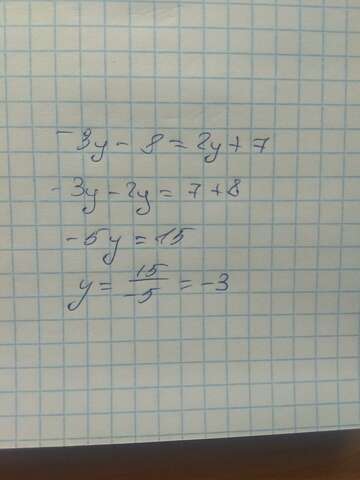 -3y - 8 = 2y + 7
-3y - 2y = 7 + 8
-5y = 15
y = 15/-5 = -3